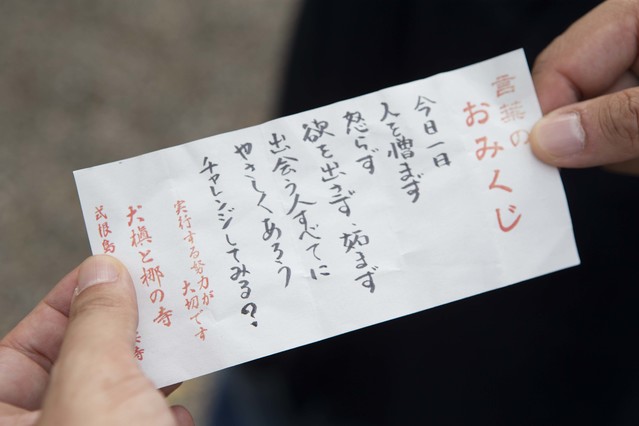 言葉の
おみくじ
今日一日
人を憎まず
怒らず
欲を出さず、妬まず
出会う人すべてに
やさしくあろう
チャレンジしてみる?
実行する努力が
大切です
犬槇と梛の寺
式根島
寺